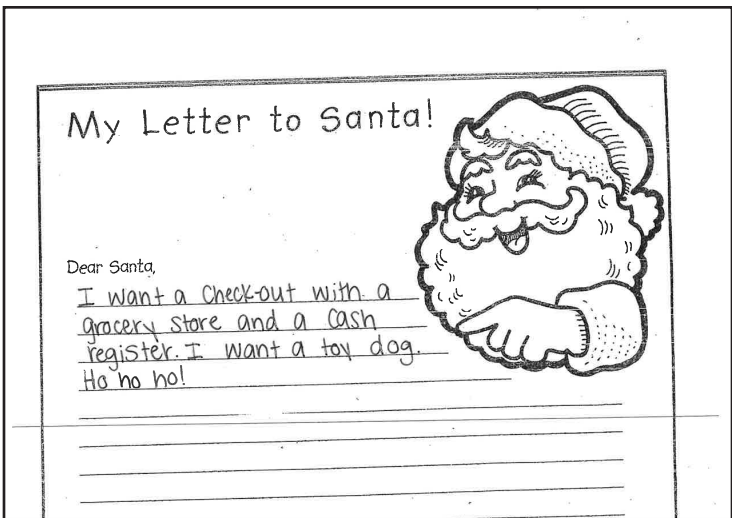 My Letter to Santa!
Dear Santa,
I want a Check-out with a
grocery store and a Cash
register. I want a toy dog.
Ho ho ho!